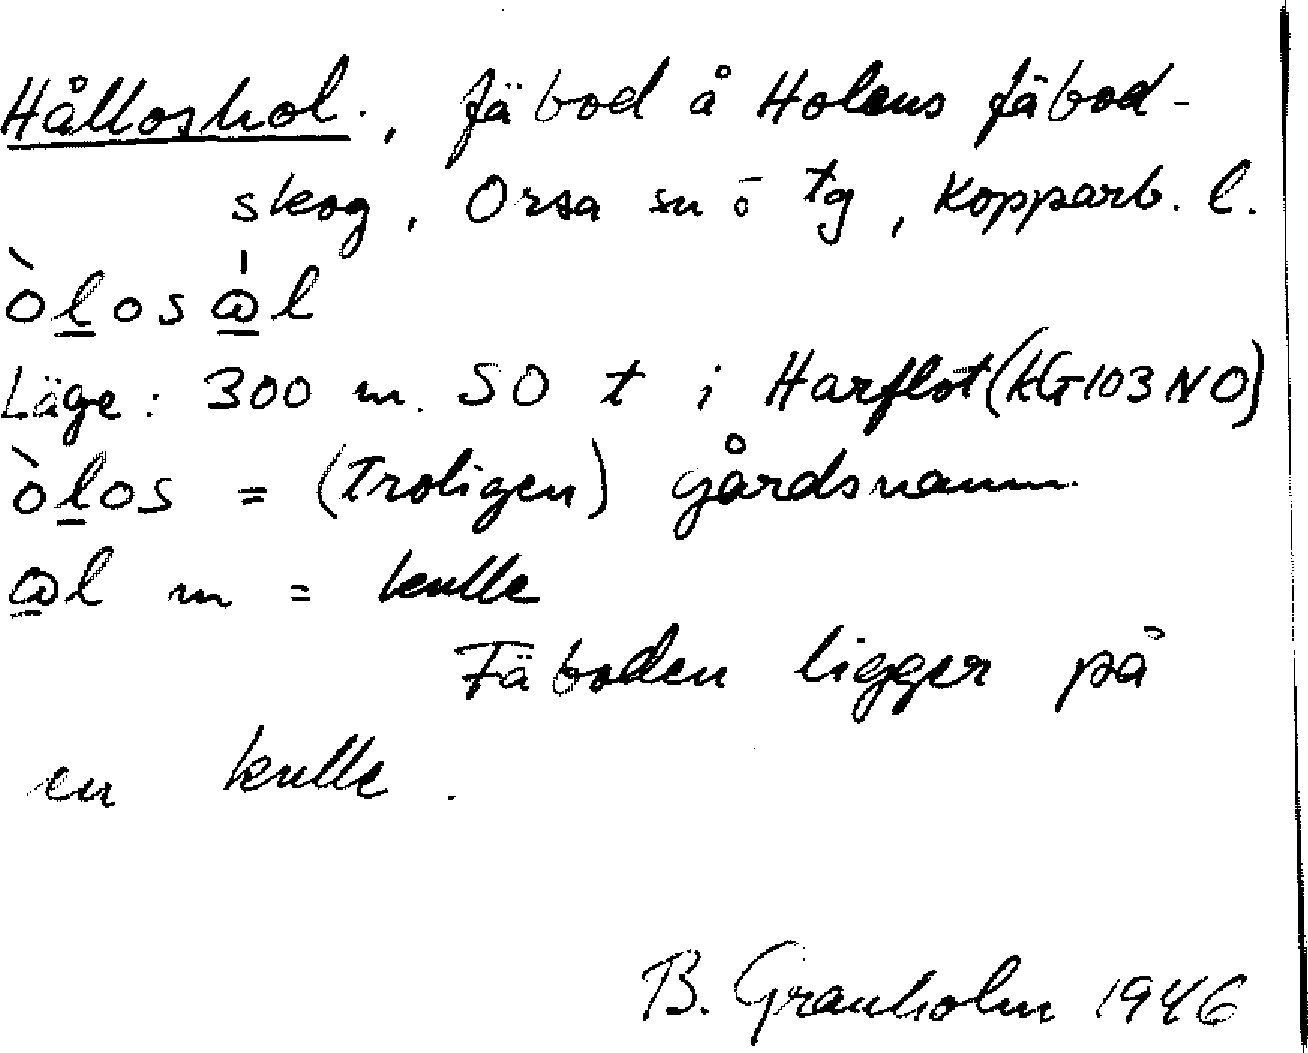 Hålloshol., fäbod å Holens fäbod-
skog, Orsa sn ö tg, Kopparb. l.
òlosω̍l
Läge: 300 m. SO t i Harflot (KG103NO)
òlos = (Troligen) gårdsnamn
ωl m = kulle
Fäboden ligger på
en kulle.
B. Granholm 1946